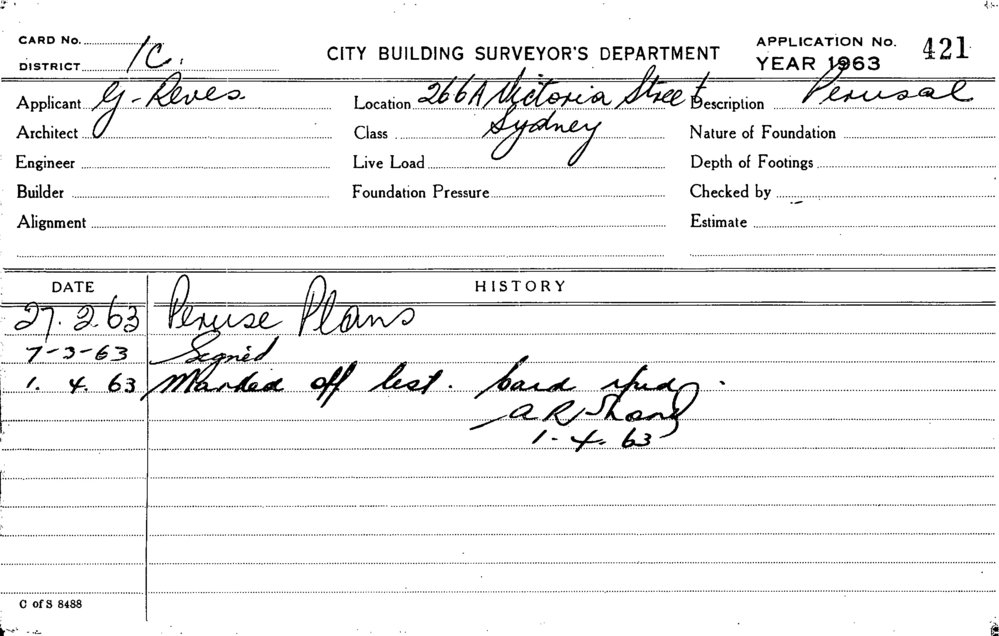 CARD No.
DISTRICT 1C.
CITY BUILDING SURVEYOR'S DEPARTMENT
APPLICATION No. 421
YEAR 1963
Applicant G. Reves. Location 266A Victoria Street Description Perusal
Architect Class Sydney Nature of Foundation
Engineer Live Load Depth of Footings
Builder Foundation Pressure Checked by
Alignment Estimate
DATE HISTORY
27. 2. 63 Peruse Plans
7-3-63 Signed
1. 4. 63 Marked off list. Card
A R
1-4.63
C of S 8488